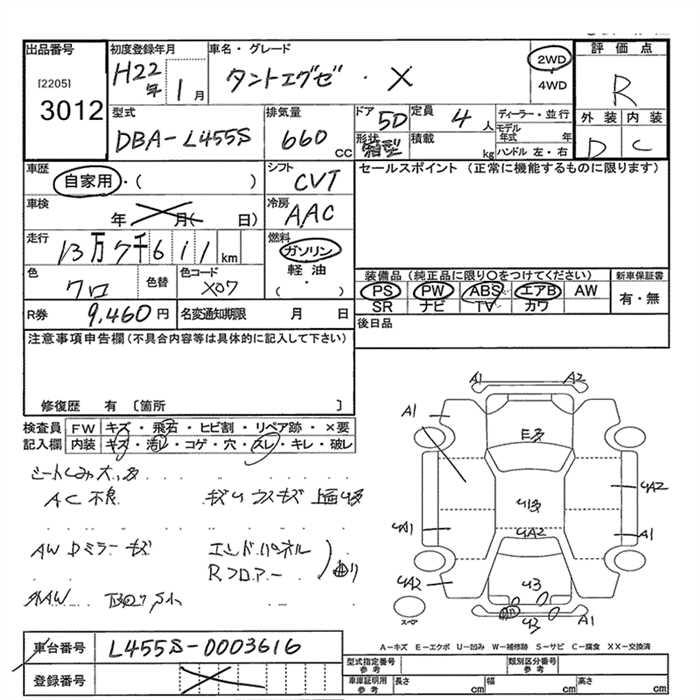 出品番号
[2205]
3012
初度登録年月
H22年 1月
車名・グレード
タントエグゼ ・ X
2WD
・
4WD
評価点
R
外装 内装
D C
型式
DBA-L455S
排気量
660 CC
ドア 5D
形状 箱型
定員 4人
積載 kg
ディーラー・並行
モデル年式 年
ハンドル 左・右
車歴
自家用・( )
シフト
CVT
セールスポイント (正常に機能するものに限ります)
車検
年 月( 日)
冷房
AAC
走行
13万7千611km
燃料
ガソリン
・
軽油
( ・ )
色
クロ
色替
色コード
X07
装備品(純正品に限り○をつけてください)
PS PW ABS エアB AW
SR ナビ TV カワ
新車保証書
有・無
R券 9,460円
名変通知期限 月 日
後日品
注意事項申告欄(不具合内容等は具体的に記入して下さい)
修復歴 有 〔箇所 〕
検査員 FW キズ・飛石・ヒビ割・リペア跡・×要
記入欄 内装 キズ・汚し・コゲ・穴・スレ・キレ・破レ
シートしみ大多
AC不良
AW Dミラーキズ
エンドパネル
Rフロアー
曲り
A1 A2
A1
E多
U多
UA2
UA1
UA2
A1
UA2
U3
U3
A1
スペア
A-キズ E-エクボ U-凹み W-補修跡 S-サビ C-腐食 XX-交換済
車台番号 L455S-0003616
登録番号
型式指定番号 参考
類別区分番号 参考
車庫証明用 参考
長さ cm
幅 cm
高さ cm